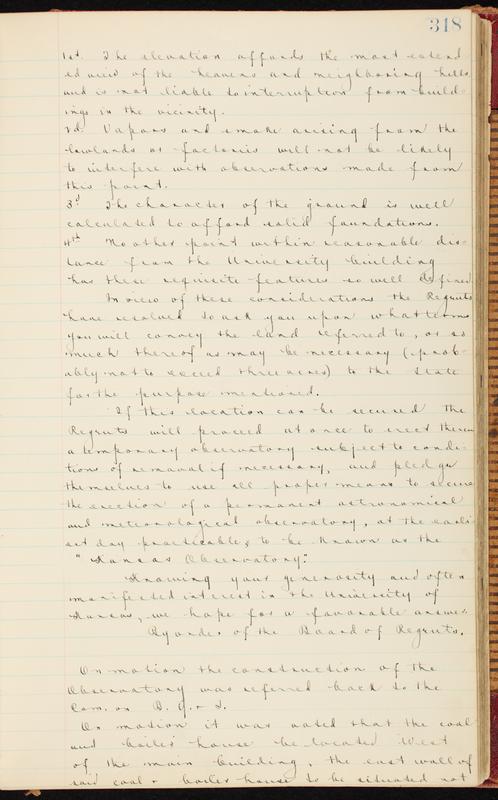 318
1st. The elevation affords the most extend
ed view of the heavens and neighboring hills
and is not liable to interruption from build-
ings in the vicinity.
2d. Vapors and smoke arising from the
lowlands or factories will not be likely
to interfere with observations made from
this point.
3d The character of the ground is well
calculated to afford solid foundations.
4th No other point within reasonable dis-
tance from the University building
has these requisite features so well defined.
In view of these considerations the Regents
have resolved to ask you upon what terms
you will convey the land referred to, or so
much thereof as may be necessary (prob-
ably not to exceed three acres) to the State
for the purpose mentioned.
If this location can be secured the
Regents will proceed at once to erect therein
a temporary observatory subject to condi-
tions of removal if necessary, and pledge
themselves to use all proper means to secure
the erection of a permanent astronomical
and meteorological observatory, at the earli-
est day practicable, to be known as the
"Kansas Observatory."
Knowing your generosity and often
manifested interest in the University of
Kansas, we hope for a favorable answer.
By order of the Board of Regents.
On motion the construction of the
Observatory was referred back to the
Com. on B. G. & I.
On motion it was voted that the coal
and boiler house be located West
of the main building, the east wall of
said coal & boiler house to be situated not